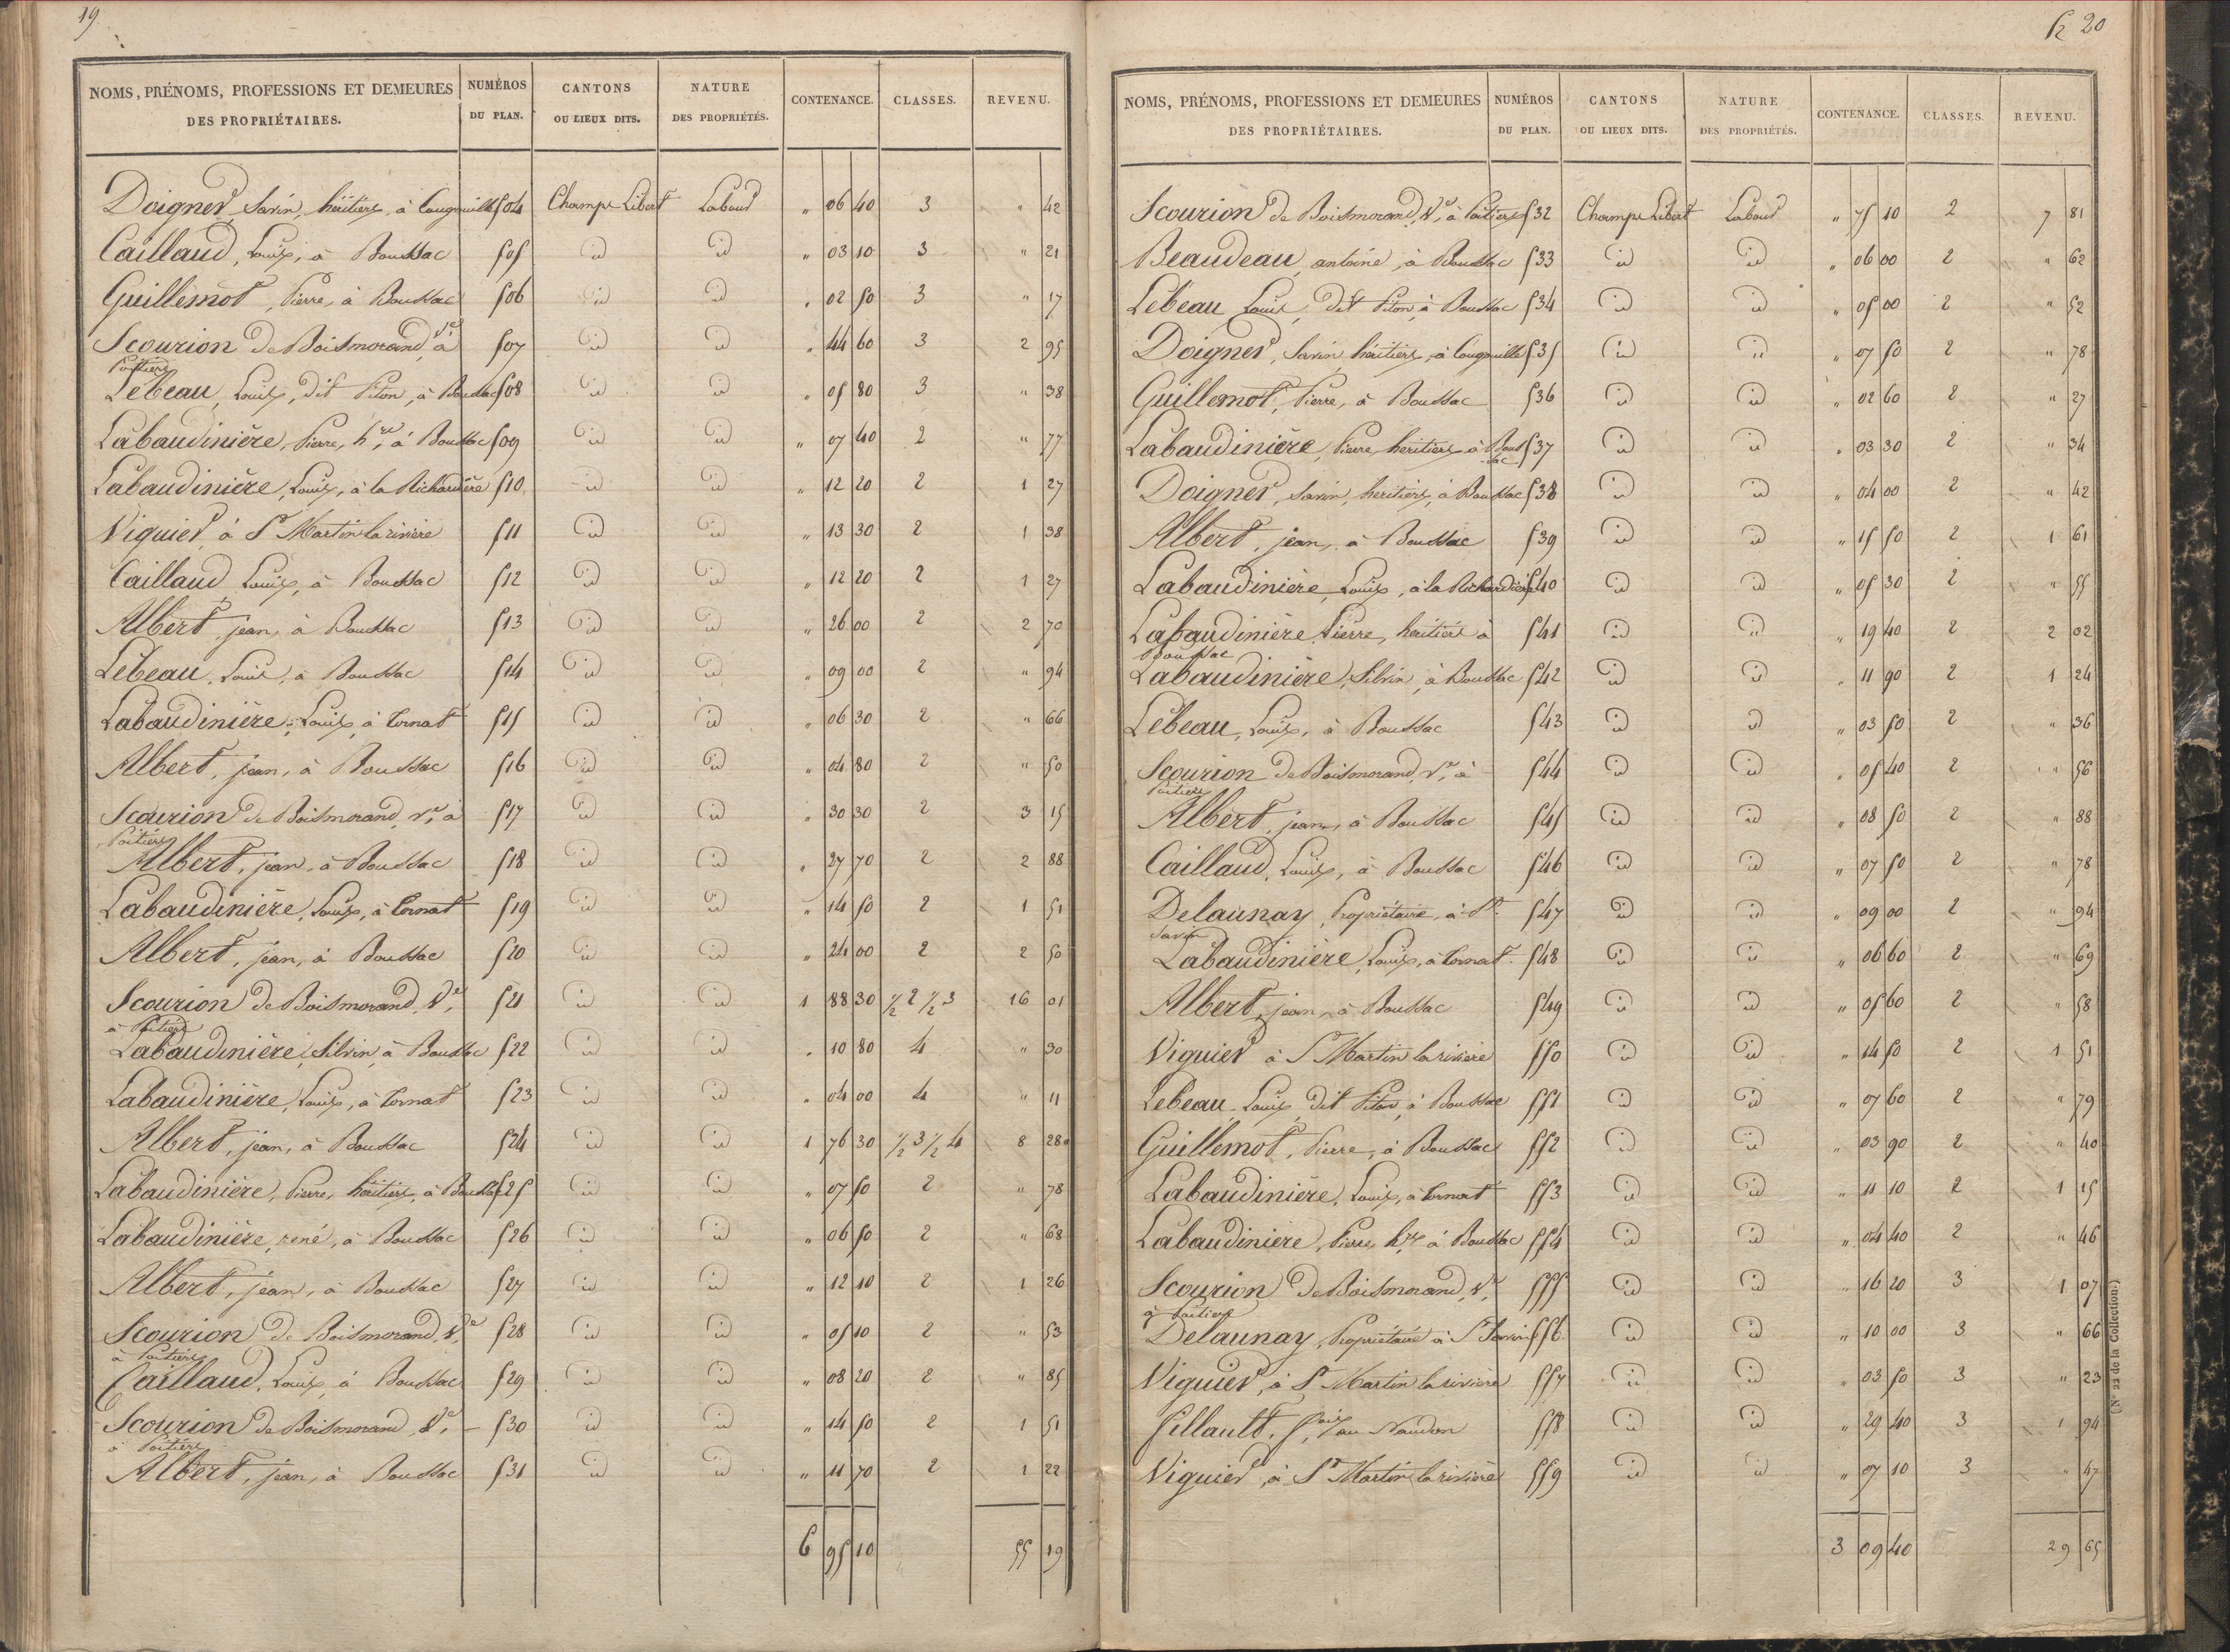 19.
NOMS, PRÉNOMS, PROFESSIONS ET DEMEURES DES PROPRIÉTAIRES. NUMÉROS DU PLAN. CANTONS OU LIEUX DITS. NATURE DES PROPRIÉTÉS. CONTENANCE. CLASSES. REVENU.
Doigner, Savin, héritiers, à 504 Champs Libert Labour " 06 40 3 " 42
Caillaud, Louis, à Boussac 505 id id " 03 10 3 " 21
Guillemot, Pierre, à Boussac 506 id id " 02 50 3 " 17
Scourion de Boismorand, Ve à 507 id id " 44 60 3 2 95
Poitiers
Lebeau, Louis, dit Piton, à Boussac 508 id id " 05 80 3 " 38
Labaudinière, Pierre, hers à Boussac 509 id id " 07 40 2 " 77
Labaudinière, Louis, à la Richardière 510 id id " 12 20 2 1 27
Viguier, à St Martin la rivière 511 id id " 13 30 2 1 38
Caillaud, Louis, à Boussac 512 id id " 12 20 2 1 27
Albert, jean, à Boussac 513 id id " 26 00 2 2 70
Lebeau, Louis, à Boussac 514 id id " 09 00 2 " 94
Labaudinière, Louis, à Tornat 515 id id " 06 30 2 " 66
Albert, jean, à Boussac 516 id id " 04 80 2 " 50
Scourion de Boismorand, Ve, à 517 id id " 30 30 2 3 15
Poitiers
Albert, jean, à Boussac 518 id id " 27 70 2 2 88
Labaudinière, Louis, à Tornat 519 id id " 14 50 2 1 51
Albert, jean, à Boussac 520 id id " 24 00 2 2 50
Scourion de Boismorand, Ve, 521 id id 1 88 30 1/2 2 1/2 3 16 01
à Poitiers
Labaudinière, Silvin, à Boussac 522 id id " 10 80 4 " 30
Labaudinière, Louis, à Tornat 523 id id " 04 00 4 " 11
Albert, jean, à Boussac 524 id id 1 76 30 1/2 3 1/2 4 8 28
Labaudinière, Pierre, héritiers, à Boussac 525 id id " 07 50 2 " 78
Labaudinière, rené, à Boussac 526 id id " 06 50 2 " 68
Albert, jean, à Boussac 527 id id " 12 10 2 1 26
Scourion de Boismorand, Ve 528 id id " 05 10 2 " 53
à Poitiers
Caillaud, Louis, à Boussac 529 id id " 08 20 2 " 85
Scourion de Boismorand, Ve, 530 id id " 14 50 2 1 51
à Poitiers
Albert, jean, à Boussac 531 id id " 11 70 2 1 22
6 95 10 55 19
20
NOMS, PRÉNOMS, PROFESSIONS ET DEMEURES DES PROPRIÉTAIRES. NUMÉROS DU PLAN. CANTONS OU LIEUX DITS. NATURE DES PROPRIÉTÉS. CONTENANCE. CLASSES. REVENU.
Scourion de Boismorand, Ve, à Poitiers 532 Champs Libert Labour " 75 10 2 7 81
Beaudeau, antoine, à Boussac 533 id id " 06 00 2 " 62
Lebeau, Louis, dit Piton, à Boussac 534 id id " 05 00 2 " 52
Doigner, Savin, héritiers, à 535 id id " 07 50 2 " 78
Guillemot, Pierre, à Boussac 536 id id " 02 60 2 " 27
Labaudinière, Pierre, heritiers à Bous 537 id id " 03 30 2 " 34
sac
Doigner, Savin, heritiers, à Boussac 538 id id " 04 00 2 " 42
Albert, jean, à Boussac 539 id id " 15 50 2 1 61
Labaudinière, Louis, à la Richardière 540 id id " 05 30 2 " 55
Labaudinière, Pierre, heritiers à 541 id id " 19 40 2 2 02
Boussac
Labaudinière, Silvin, à Boussac 542 id id " 11 90 2 1 24
Lebeau, Louis, à Boussac 543 id id " 03 50 2 " 36
Scourion de Boismorand, Ve, à 544 id id " 05 40 2 " 56
Poitiers
Albert, jean, à Boussac 545 id id " 08 50 2 " 88
Caillaud, Louis, à Boussac 546 id id " 07 50 2 " 78
Delaunay, Propriétaire, à St 547 id id " 09 00 2 " 94
Savin
Labaudinière, Louis, à Tornat 548 id id " 06 60 2 " 69
Albert, jean, à Boussac 549 id id " 05 60 2 " 58
Viguier à St Martin la rivière 550 id id " 14 50 2 1 51
Lebeau, Louis, dit Piton, à Boussac 551 id id " 07 60 2 " 79
Guillemot, Pierre, à Boussac 552 id id " 03 90 2 " 40
Labaudinière, Louis, à Tornat 553 id id " 11 10 2 1 15
Labaudinière, Pierre, hers à Boussac 554 id id " 04 40 2 " 46
Scourion de Boismorand, Ve, 555 id id " 16 20 3 1 07
à Poitiers
Delaunay, Propriétaire à St Savin 556 id id " 10 00 3 " 66
Viguier, à St Martin la rivière 557 id id " 03 50 3 " 23
Fillault, fçois au Naudon 558 id id " 29 40 3 1 94
Viguier, à St Martin la rivière 559 id id " 07 10 3 " 47
3 09 40 29 65
(No 22 de la Collection.)